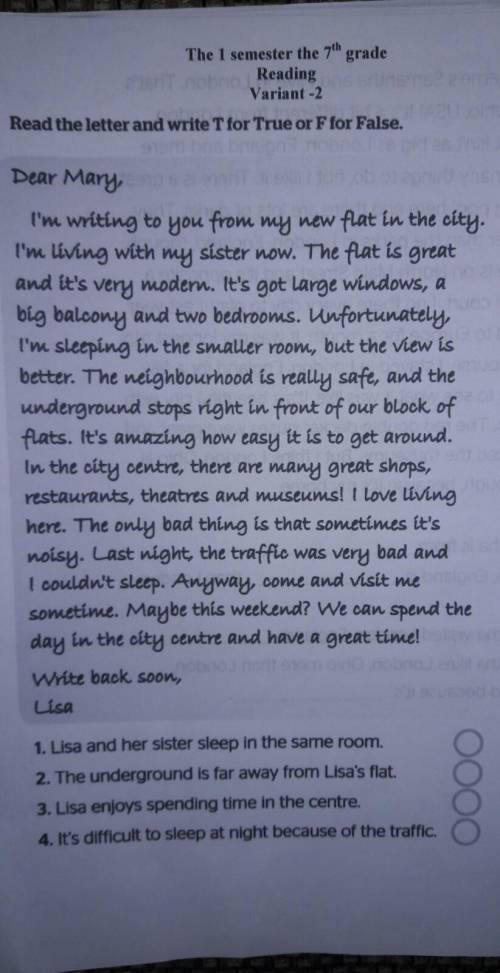 The 1 semester the 7th grade
Reading
Variant -2
Read the letter and write T for True or F for False.
Dear Mary,
I'm writing to you from my new flat in the city.
I'm living with my sister now. The flat is great
and it's very modern. It's got large windows, a
big balcony and two bedrooms. Unfortunately,
I'm sleeping in the smaller room, but the view is
better. The neighbourhood is really safe, and the
underground stops right in front of our block of
flats. It's amazing how easy it is to get around.
In the city centre, there are many great shops,
restaurants, theatres and museums! I love living
here. The only bad thing is that sometimes it's
noisy. Last night, the traffic was very bad and
I couldn't sleep. Anyway, come and visit me
sometime. Maybe this weekend? We can spend the
day in the city centre and have a great time!
Write back soon,
Lisa
1. Lisa and her sister sleep in the same room.
2. The underground is far away from Lisa's flat.
3. Lisa enjoys spending time in the centre.
4. It's difficult to sleep at night because of the traffic.